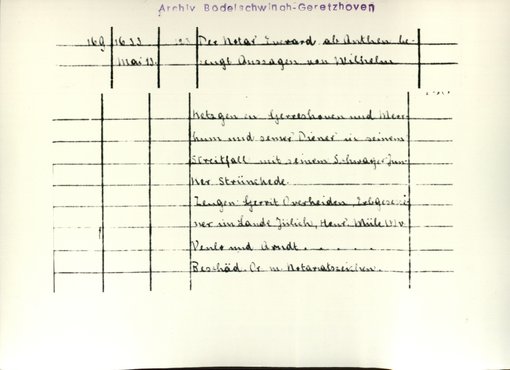 Archiv Bodelschwingh-Geretzhoven
169 1633 123 Der Notar Everard ab Anthen be-
Mai 13. zeugt Aussagen von Wilhelm
Ketzgen in Gerreshoven und Meer-
hum und seiner Diener in seinem
Streitfall mit seinem Schwager Jun-
ker Strünkede.
Zeugen: Gerrit Overheiden, Erbgeses-
ner im Lande Jülich, Henr.
Venlo und Arndt . . . . .
Beschäd. Or. m. Notariatszeichen.